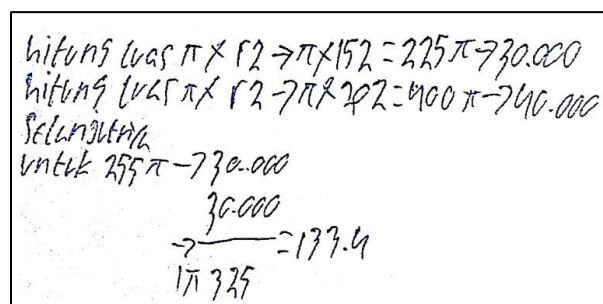 hitung luas π x r2 → π x 152 = 225 π → 30.000
hitung luas π x r2 → π x 202 = 400 π → 40.000
Selanjutnya
untuk 255 π → 30.000
30.000
→ ——— = 133.4
1π 325